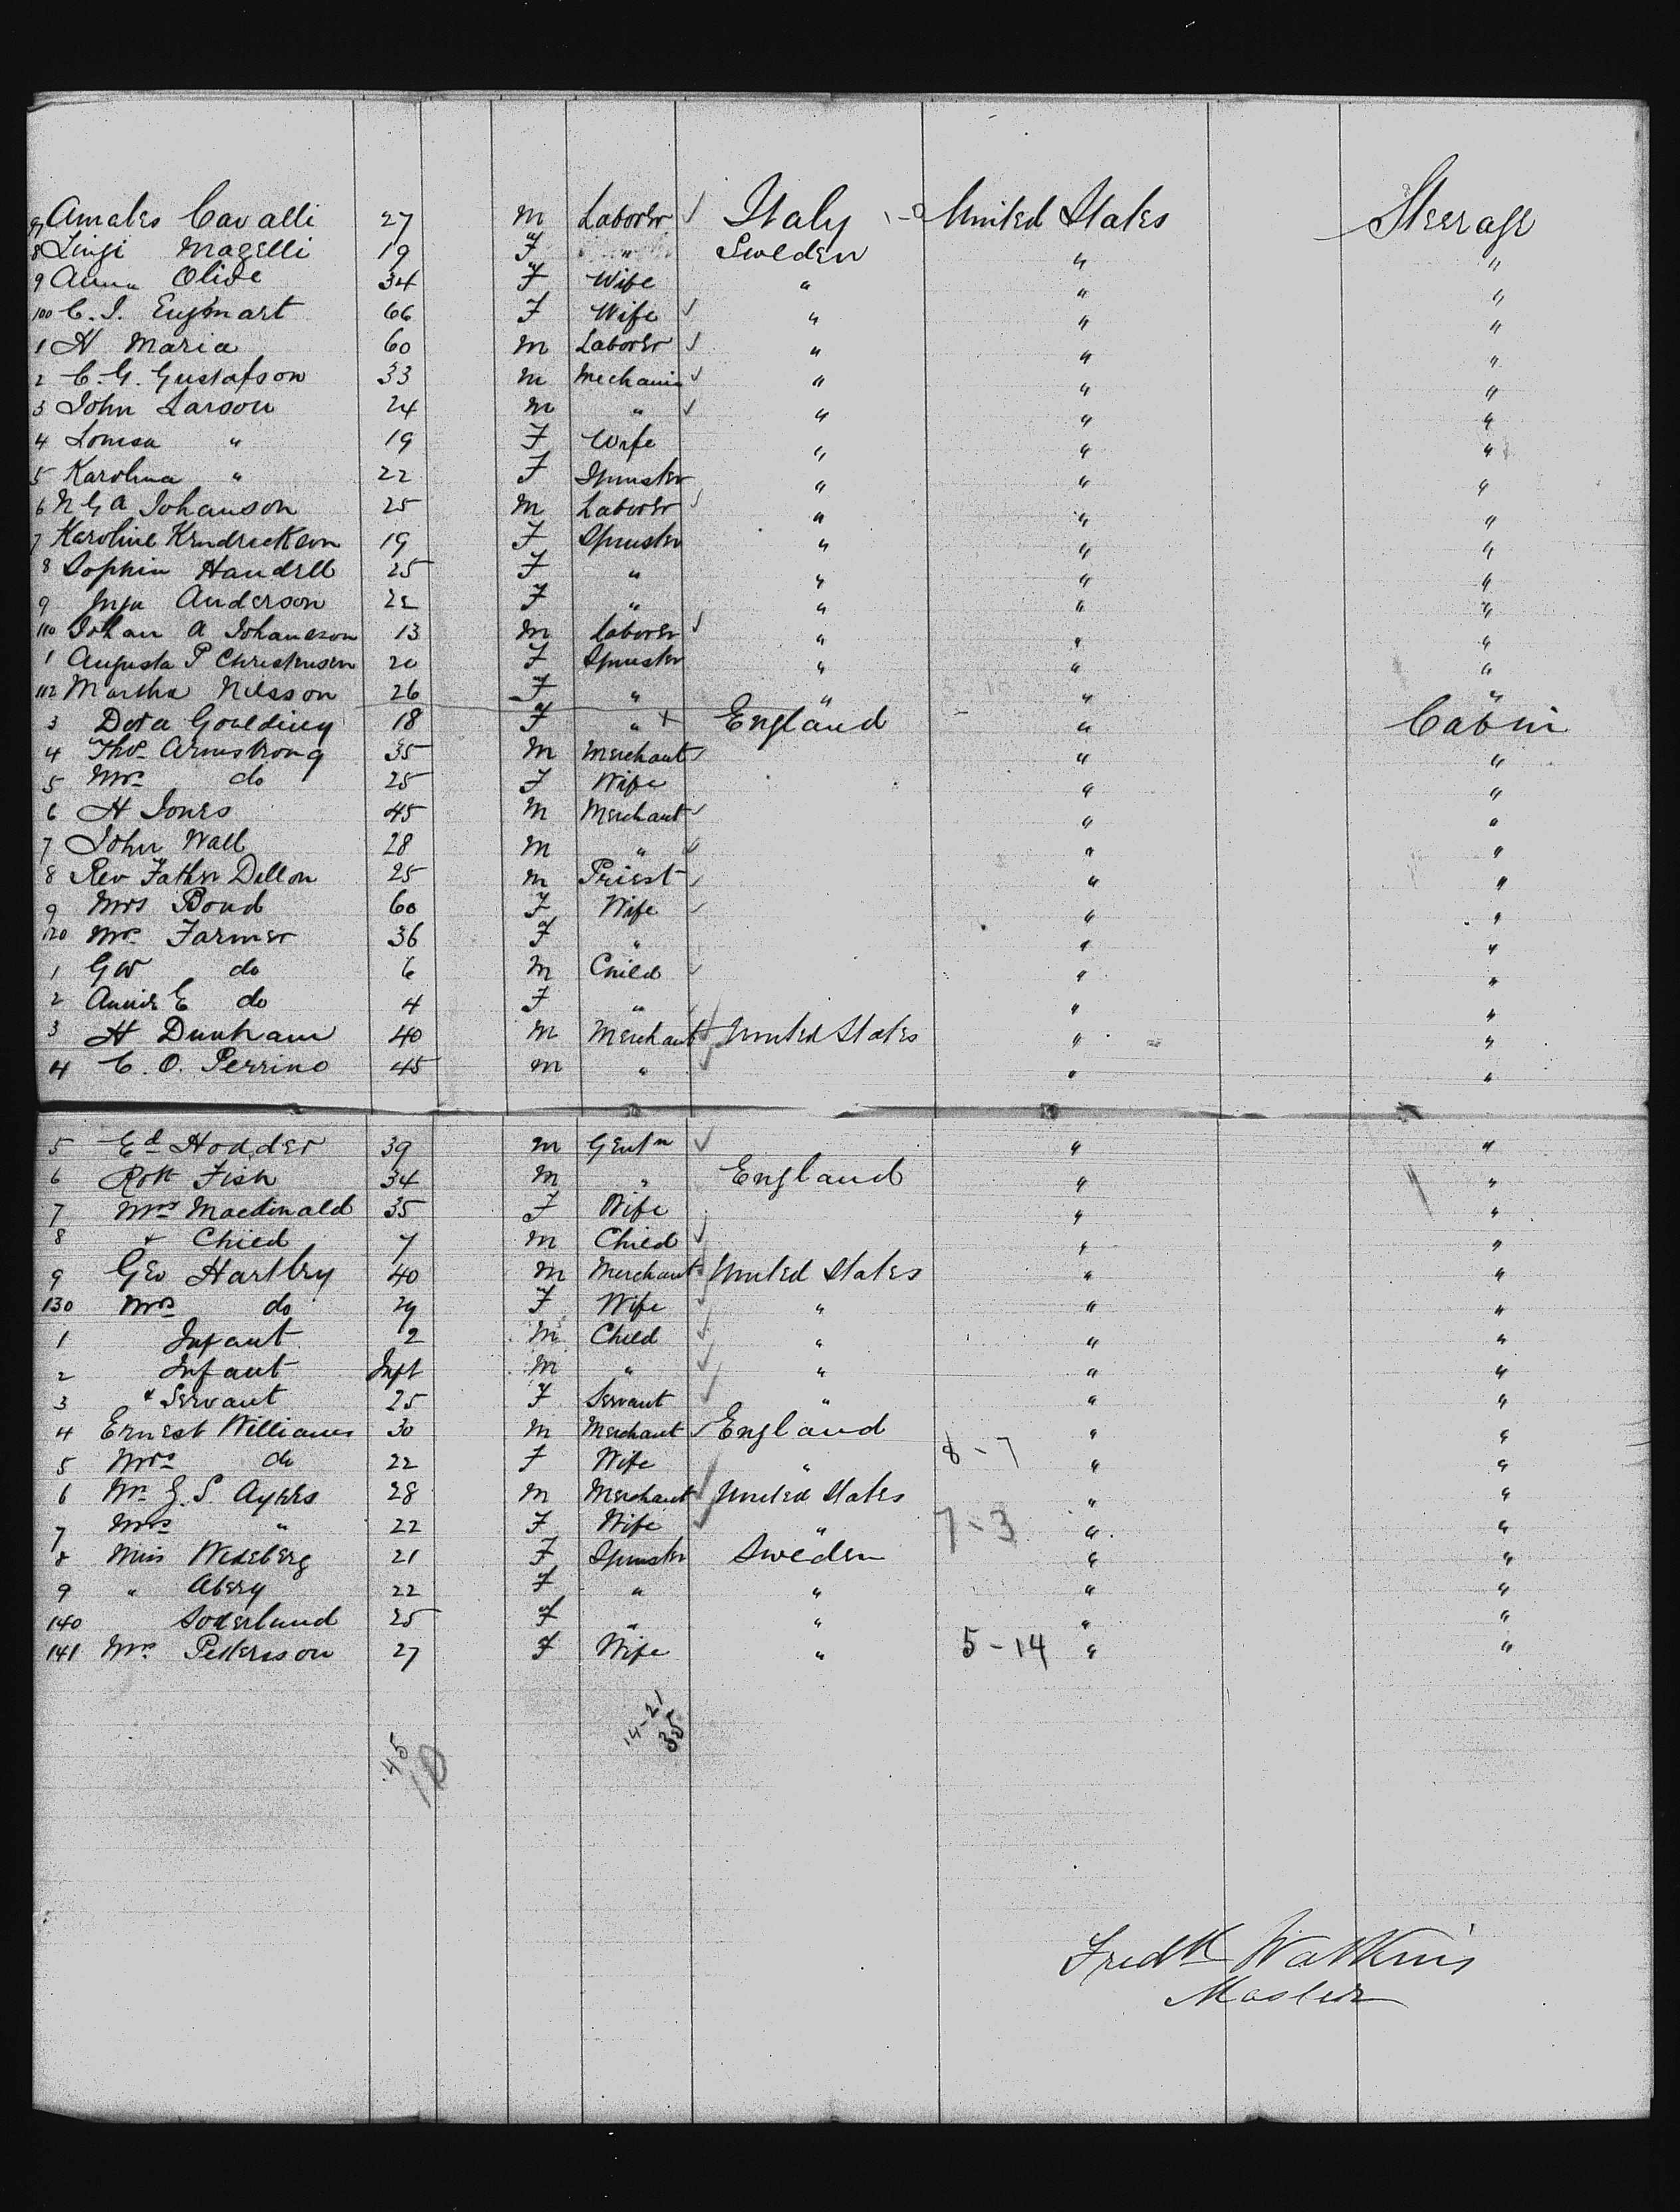 97 Amates Cavalli 27 M Laborer ✓ Italy United States Steerage
8 Luigi Mazelli 19 F " Sweden " "
9 Anna Olide 34 F Wife " " "
100 C. I. 66 F Wife ✓ " " "
1 H Maria 60 M Laborer ✓ " " "
2 C. G. Gustafson 33 M Mechanic ✓ " " "
3 John Larson 24 M " ✓ " " "
4 Lousa " 19 F Wife " " "
5 Karolina " 22 F Spinster " " "
6 N G A Johanson 25 M Laborer ✓ " " "
7 Karoline Kendrickson 19 F Spinster " " "
8 Sophia Handell 25 F " " " "
9 Inga Anderson F " " " "
110 Johan A Johanson 13 M Laborer ✓ " " "
1 Augusta P Christensen 20 F Spinster " " "
112 Martha Nilsson 26 F " " " "
3 Dora Goulding 18 F " + England " Cabin
4 Thos Armstrong 35 M Merchant ✓ " "
5 Mrs do 25 F Wife " "
6 H Jones 45 M Merchant ✓ " "
7 John Wall 28 M " ✓ " "
8 Rev Father Dillon 25 M Priest ✓ " "
9 Mrs Bond 60 F Wife ✓ " "
120 Mrs Farmer 36 F " " "
1 G W do 6 M Child ✓ " "
2 Annie E do 4 F " " "
3 H Dunham 40 M Merchant ✓ United States " "
4 C. O. Perrino 45 M " ✓ " "
5 Ed Hodder 39 M Gentn ✓ " "
6 Robt Fish 34 M " England " "
7 Mrs Macdinald 35 F Wife " "
8 & Child 7 M Child ✓ " "
9 Geo Hartley 40 M Merchant United States " "
130 Mrs do 29 F Wife ✓ " " "
1 Infant 2 M Child ✓ " " "
2 Infant Inft M " ✓ " " "
3 & Servant 25 F Servant ✓ " " "
4 Ernest Williams 30 M Merchant ✓ England " "
5 Mrs do 22 F Wife " 8-7 " "
6 Mr G. S. Ayres 28 M Merchant ✓ United States " "
7 Mrs " 22 F Wife ✓ " 7-3 " "
8 Miss Wedeberg 21 F Spinster Sweden " "
9 " Abery 22 F " " " "
140 Soderlund 25 F " " " "
141 Mrs Pettersson 27 F Wife " 5-14 " "
14-21
35
45
10
Fredk Watkins
Master